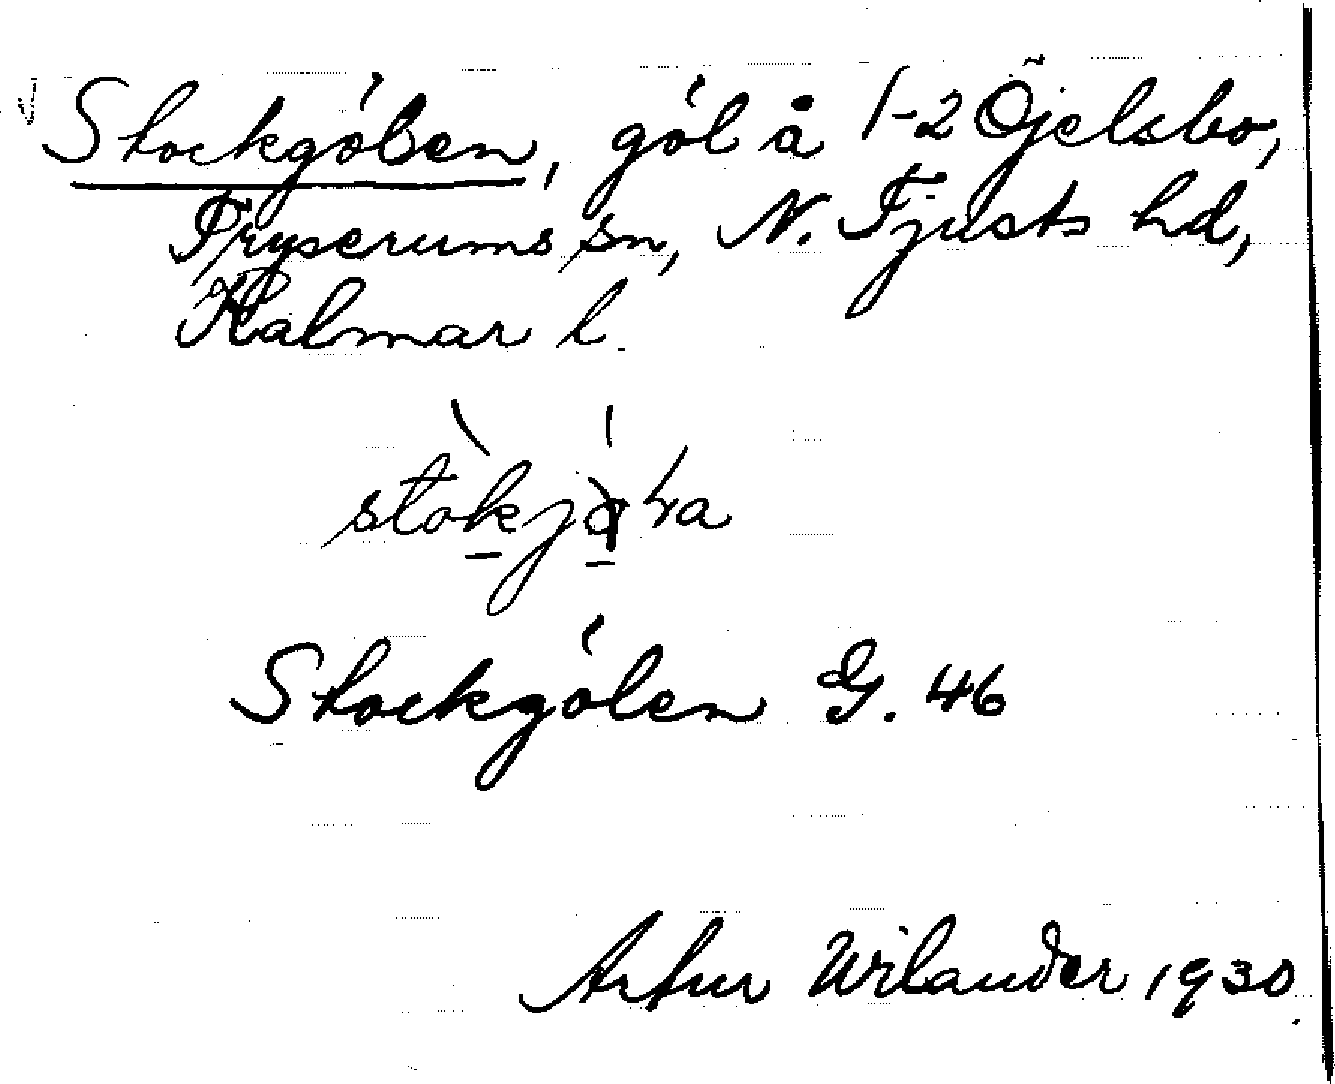 Stockgölen, göl å 1-2 Öjelsbo,
Tryserums sn, N. Tjusts hd,
Kalmar l.
Stockgölen G. 46
Artur Wilander 1930